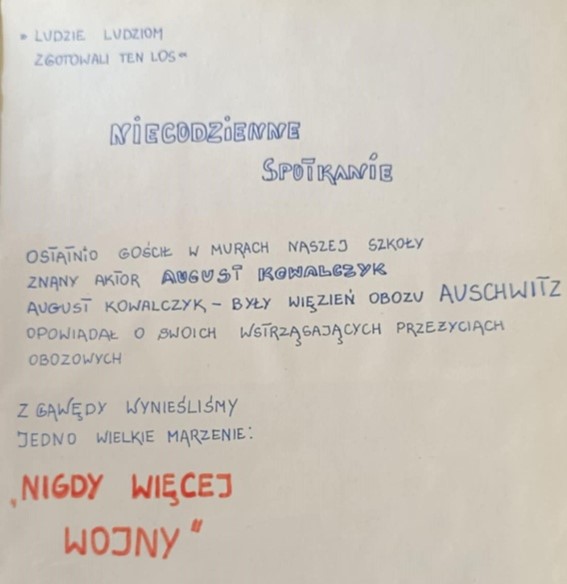 „LUDZIE LUDZIOM
ZGOTOWALI TEN LOS"
NIECODZIENNE
SPOTKANIE
OSTATNIO GOŚCIŁ W MURACH NASZEJ SZKOŁY
ZNANY AKTOR AUGUST KOWALCZYK
AUGUST KOWALCZYK – BYŁY WIĘZIEŃ OBOZU AUSCHWITZ
OPOWIADAŁ O SWOICH WSTRZĄSAJĄCYCH PRZEŻYCIACH
OBOZOWYCH
Z GAWĘDY WYNIEŚLIŚMY
JEDNO WIELKIE MARZENIE:
„NIGDY WIĘCEJ
WOJNY"